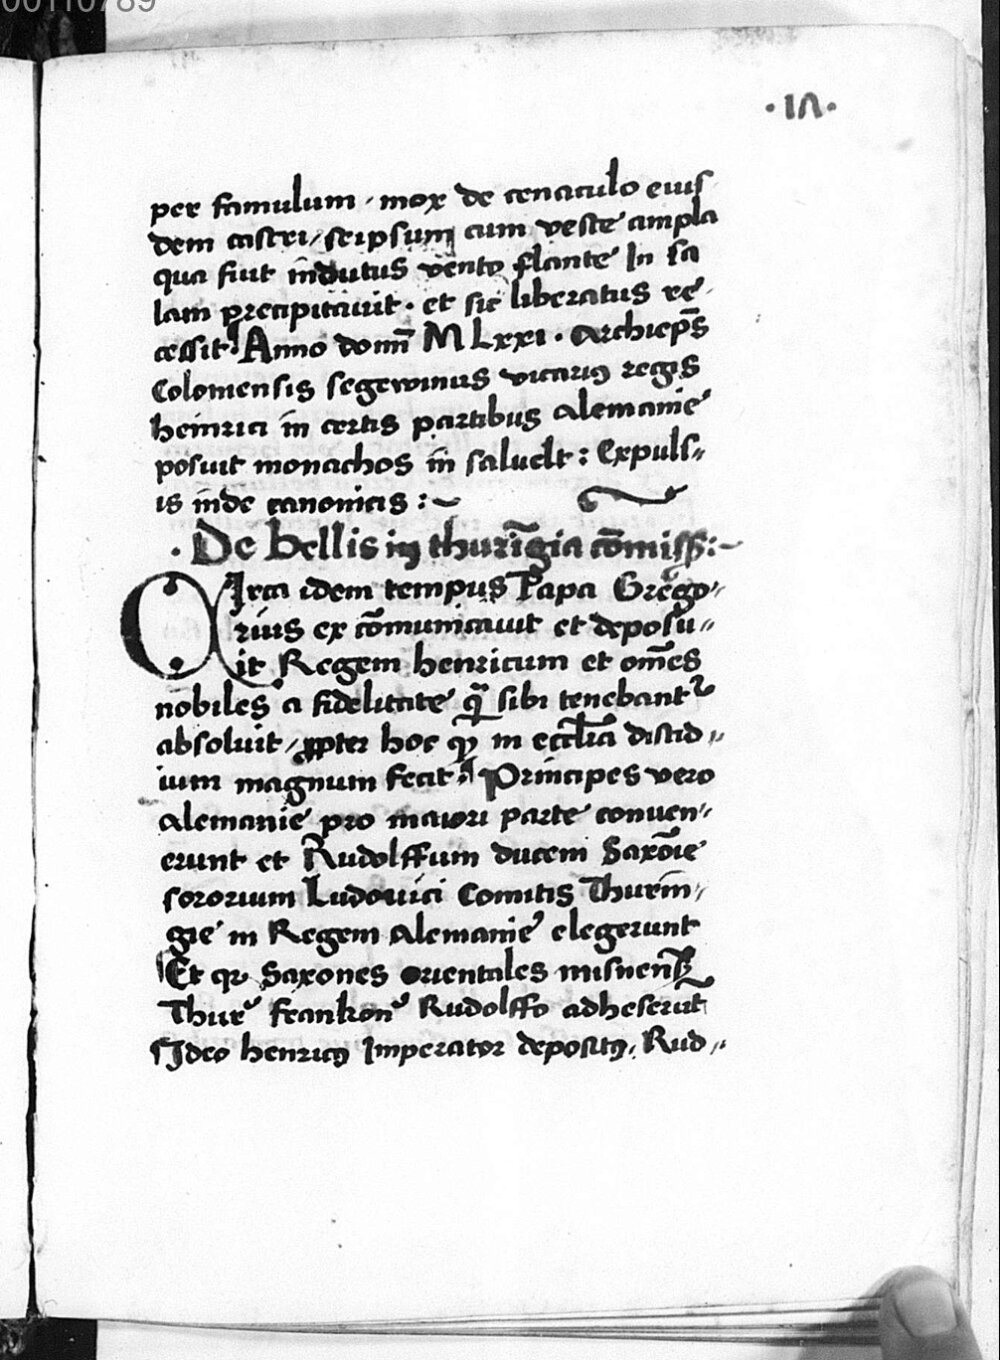 00110789
·17·
per famulum · mox de cenaculo eius
dem castri / seipsum cum veste ampla
qua fuit indutus vento flante In sa
lam precipitauit · et sic liberatus re
cessit · Anno domī M Lxxi · archiep̄s
Coloniensis segewinus vicariꝰ regis
heinrici in certis partibus alemanie
posuit monachos in saluelt : Expuls〃
is inde canonicis :~
· De bellis in thurīgia cōmiss :~
CIrca idem tempus Papa Gregō〃
rius ex cōmunicauit et deposu〃
it Regem henricum et om̄es
nobiles a fidelitate q̄ sibi tenebantʳ
absoluit / ꝓpter hoc ꝙ in eccl̄ia discid〃
ium magnum fecit · Principes vero
alemanie pro maiori parte conuen〃
erunt et Rudolffum ducem Saxōie
sororium Ludouici Comitis Thurin〃
gie in Regem alemanie elegerunt
Et qꝛ Saxones orientales misnenß
Thur᾽ frankon᾽ Rudolffo adheserūt
Ideo henricꝰ Imperator depositꝰ · Rud〃